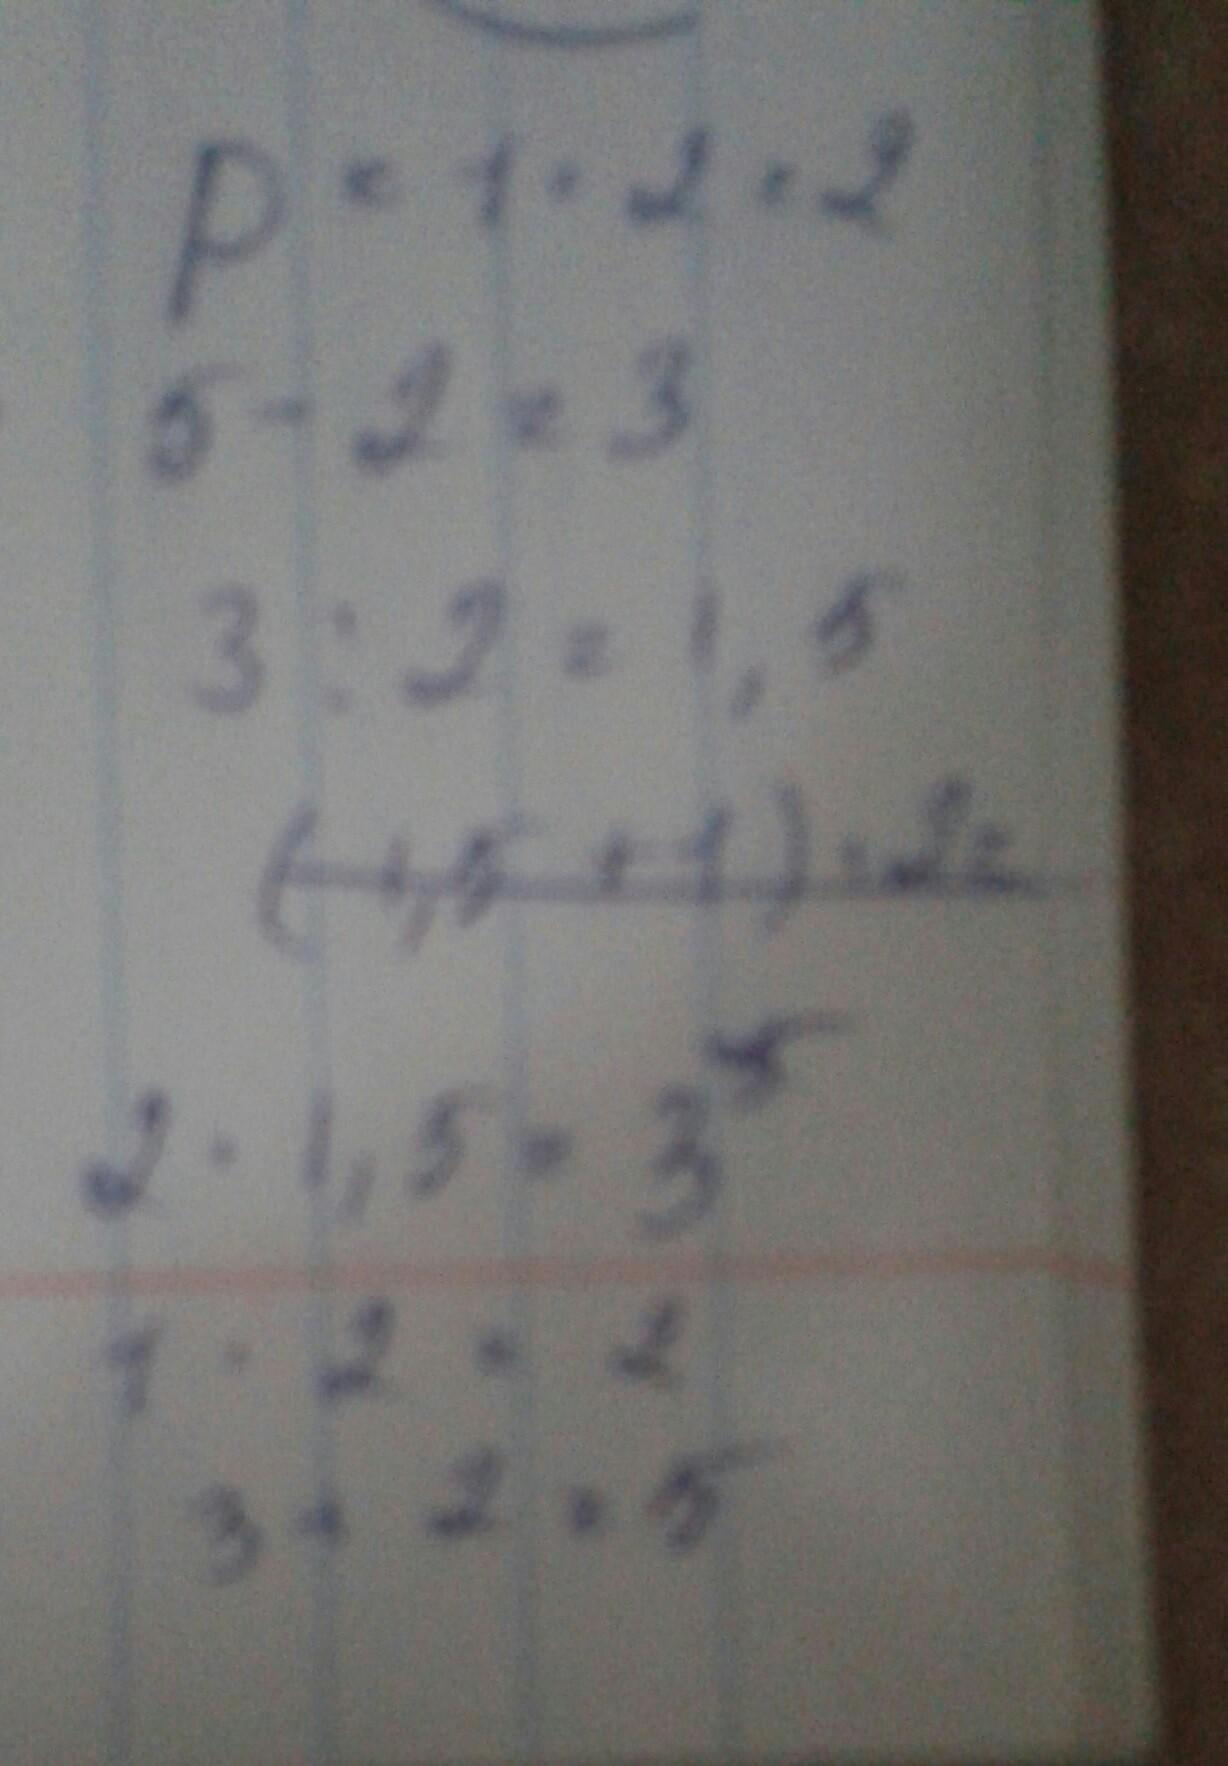 P = 1 · 2 = 2
5 - 2 = 3
3 : 2 = 1,5
(1,5 + 1) · 2 =
2 · 1,5 = 3
5
1 · 2 = 2
3 + 2 = 5